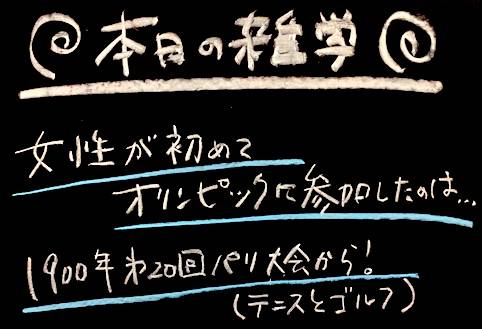 本日の雑学
女性が初めて
オリンピックに参加したのは...
1900年第20回パリ大会から!
(テニスとゴルフ)